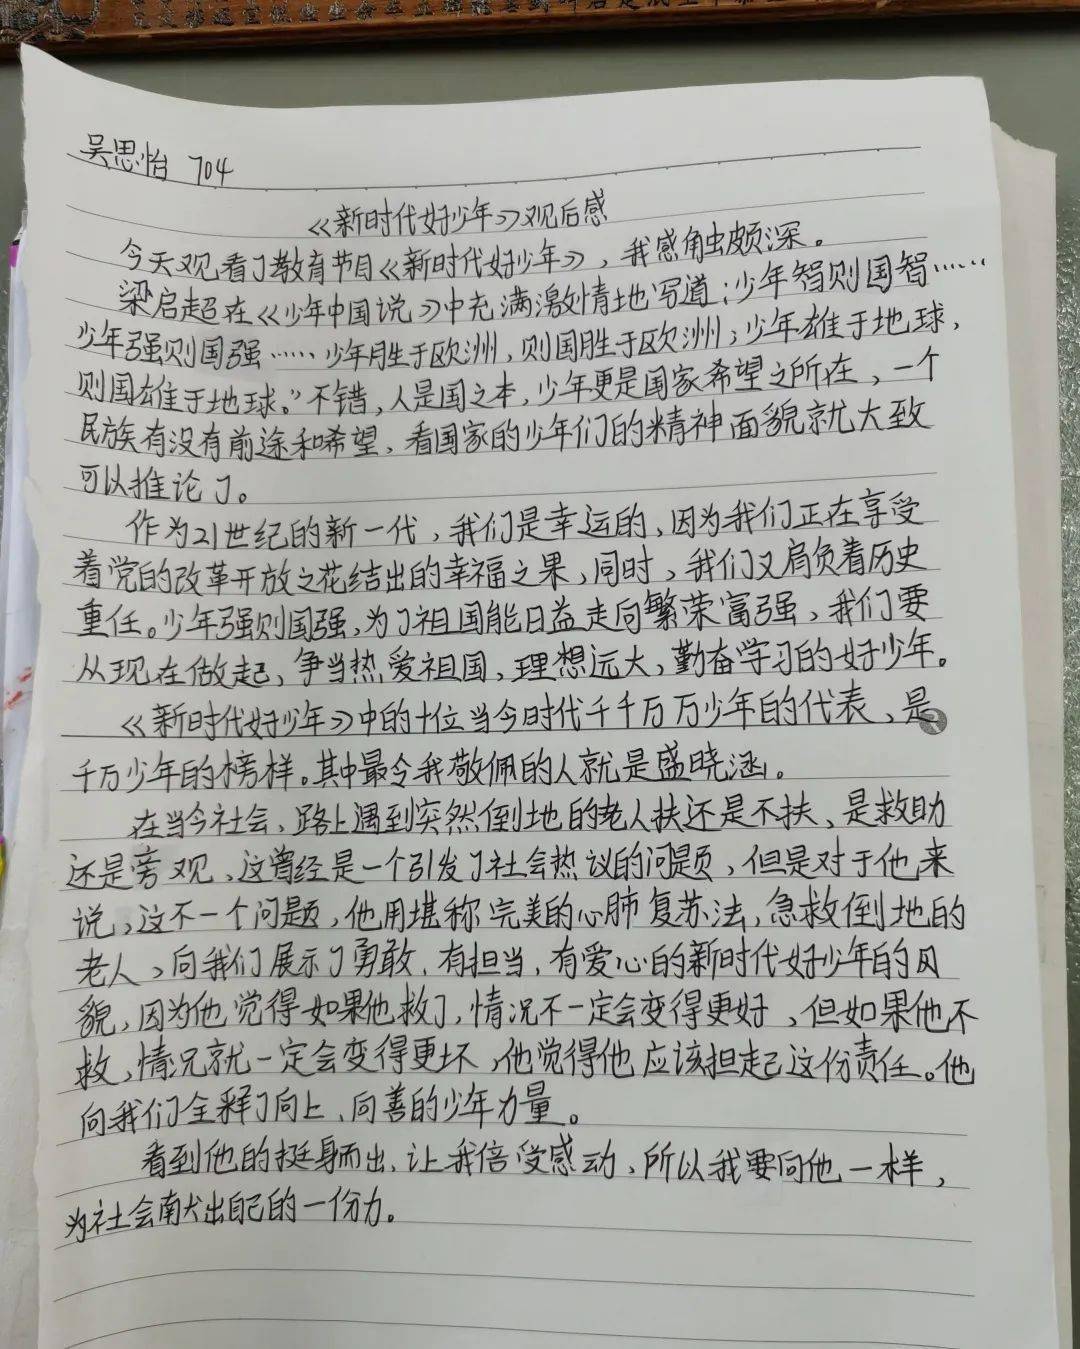 吴思怡 704
《新时代好少年》观后感
今天观看了教育节目《新时代好少年》，我感触颇深。
梁启超在《少年中国说》中充满激情地写道：少年智则国智……
少年强则国强……少年胜于欧洲，则国胜于欧洲；少年雄于地球，
则国雄于地球。”不错，人是国之本，少年更是国家希望之所在，一个
民族有没有前途和希望、看国家的少年们的精神面貌就大致
可以推论了。
作为21世纪的新一代，我们是幸运的、因为我们正在享受
着党的改革开放之花结出的幸福之果，同时，我们又肩负着历史
重任。少年强则国强，为了祖国能日益走向繁荣富强，我们要
从现在做起，争当热爱祖国，理想远大，勤奋学习的好少年。
《新时代好少年》中的十位当今时代千千万万少年的代表、是
千万少年的榜样。其中最令我敬佩的人就是盛晓涵。
在当今社会、路上遇到突然倒地的老人扶还是不扶、是救助
还是旁观、这曾经是一个引发了社会热议的问题，但是对于他来
说，这不一个问题，他用堪称完美的心肺复苏法，急救倒地的
老人，向我们展示了勇敢、有担当、有爱心的新时代好少年的风
貌，因为他觉得如果他救了，情况不一定会变得更好，但如果他不
救，情况就一定会变得更坏，他觉得他应该担起这份责任。他
向我们全释了向上、向善的少年力量。
看到他的挺身而出、让我倍受感动、所以我要向他一样，
为社会献出自己的一份力。